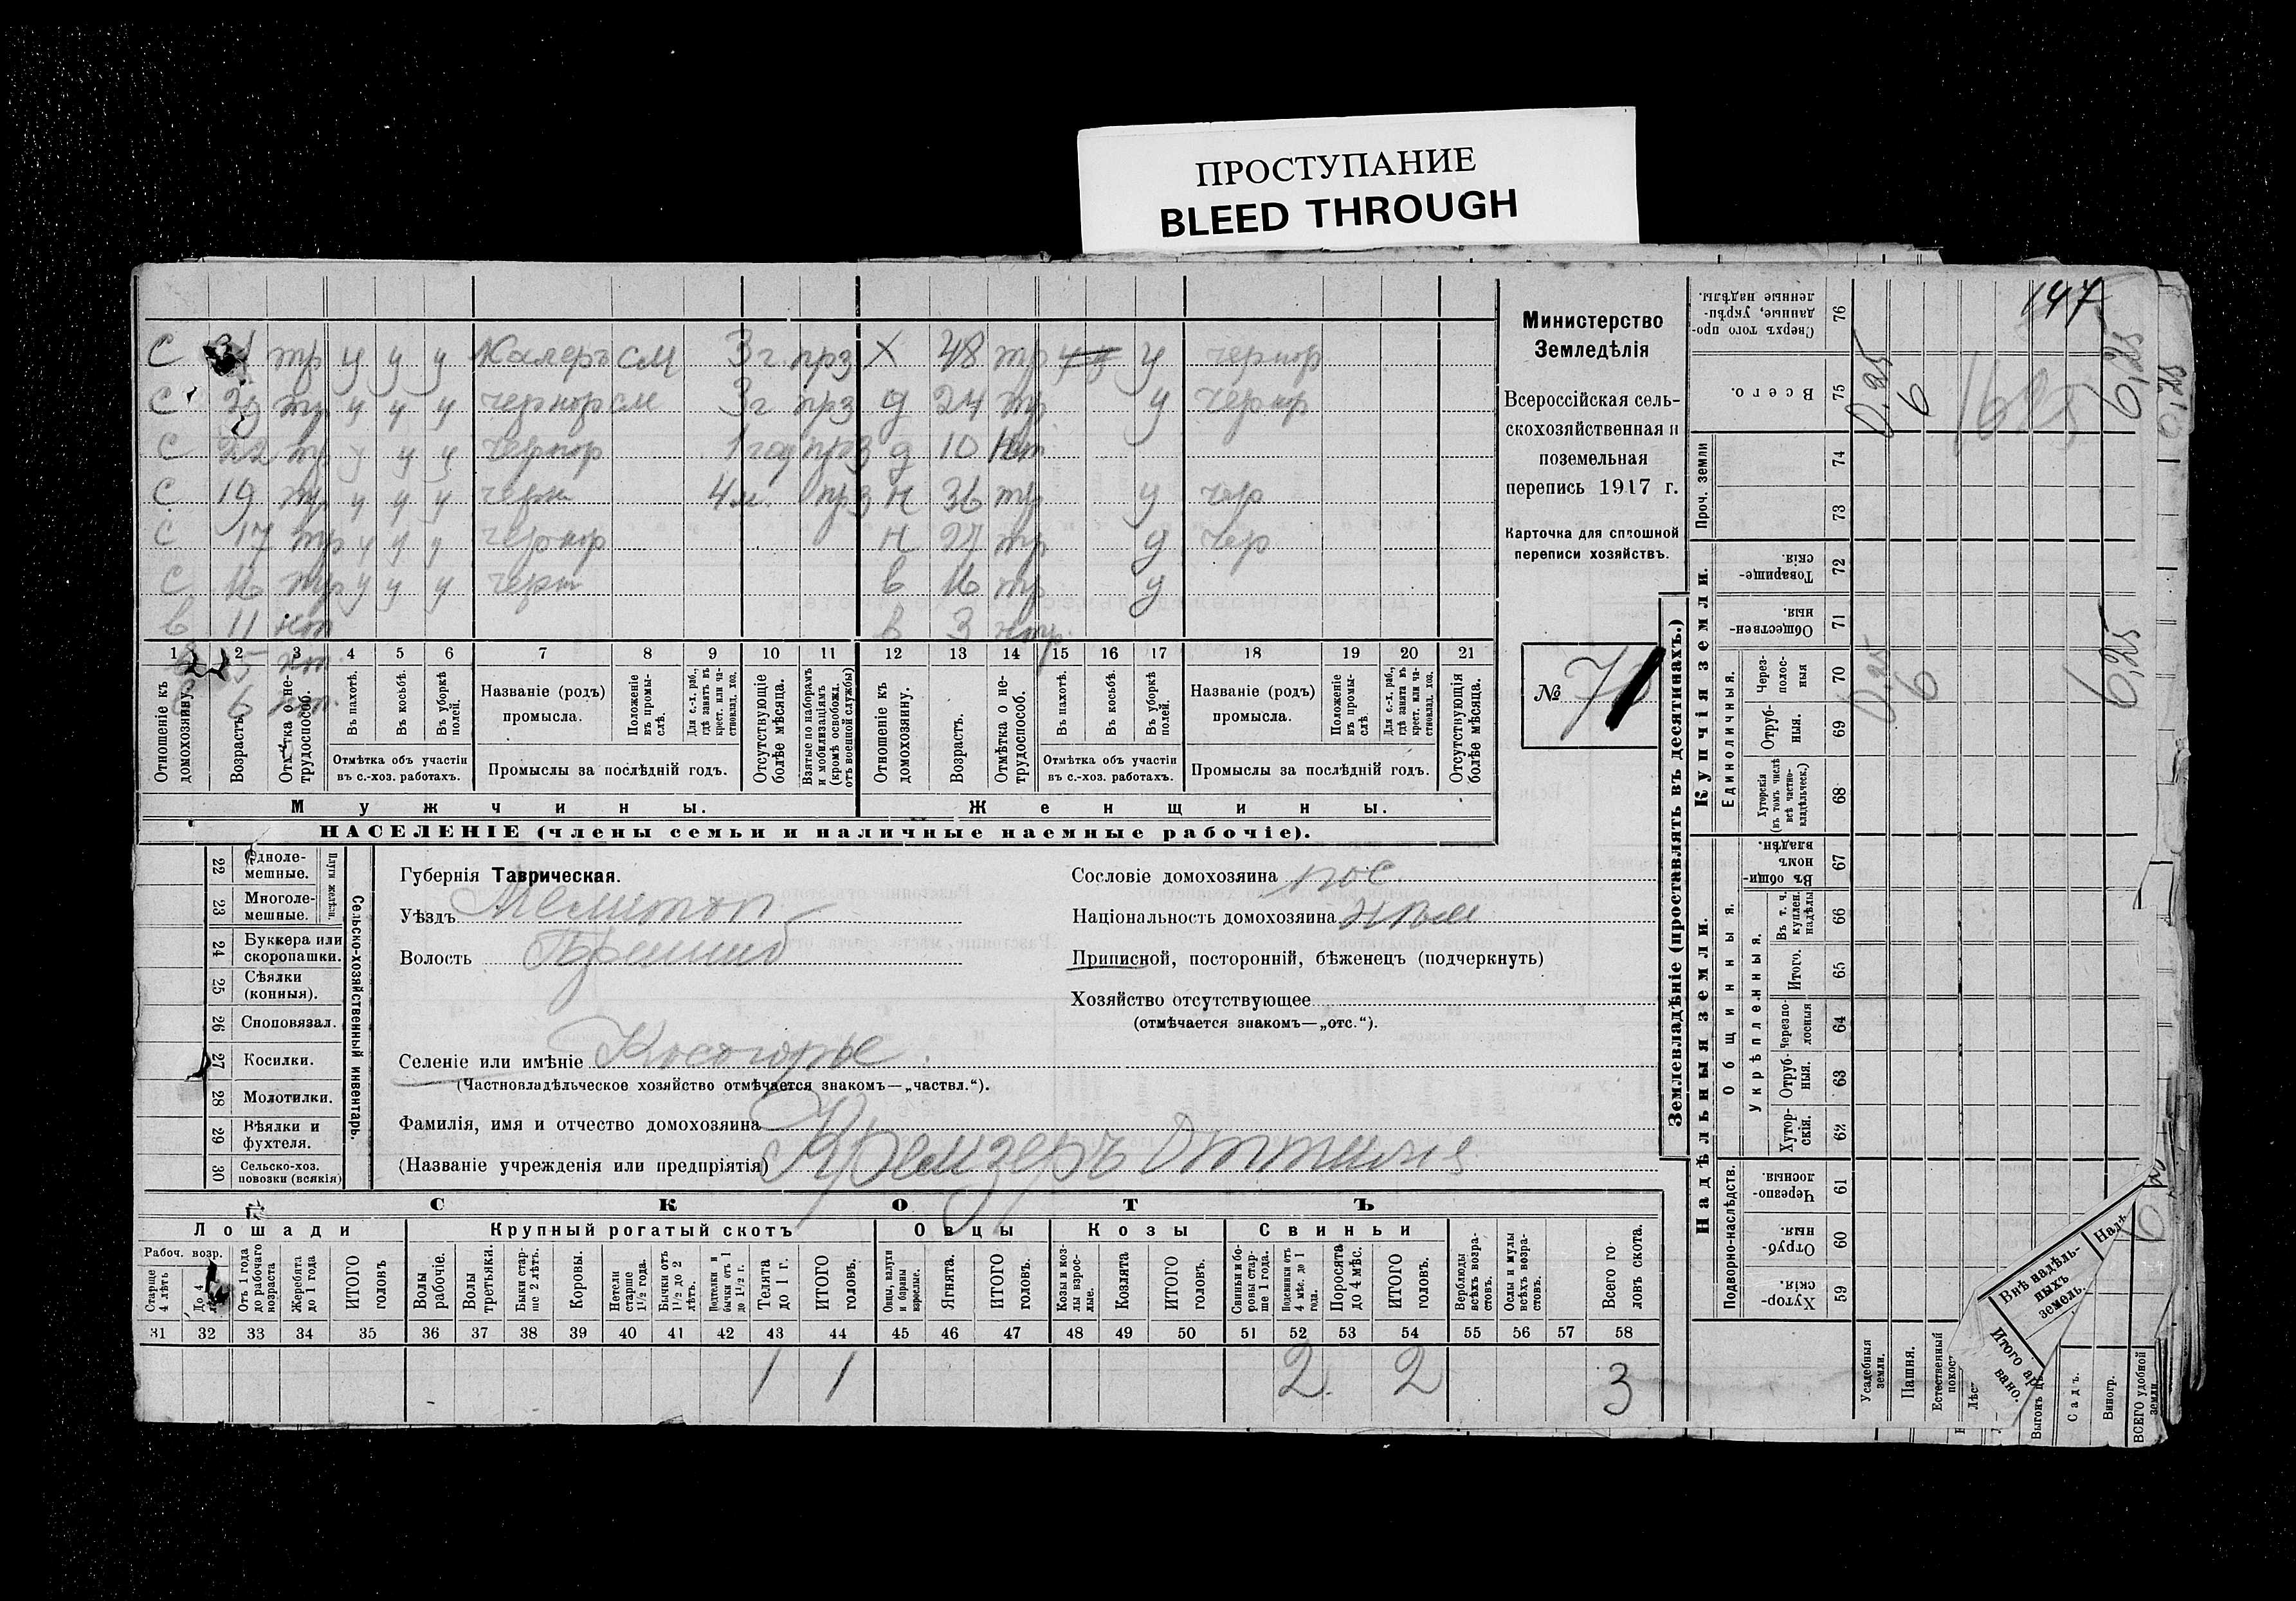 ПРОСТУПАНИЕ
BLEED THROUGH
147
С тр у у у см 3 г. прз Х 48 тр у чернор
С тр у у у чернор см 3 г прз д 24 тр у чернор
С 22 тр у у у чернор 1 год прз д 10 нт
С 19 тр у у у черн 4 м. прз н 36 тр у чер
С 17 тр у у у чернор н 27 тр у чер
С 16 тр у у у черн в 16 тр у
в 11 нт в 3 нтр.
5 нт.
6 нт.
1 2 3 4 5 6 7 8 9 10 11 12 13 14 15 16 17 18 19 20 21
Отношеніе къ домохозяину.
Возрастъ.
Отмѣтка о не-трудоспособ.
Въ пахотѣ.
Въ косьбѣ.
Въ уборкѣ полей.
Отмѣтка объ участіи въ с.-хоз. работахъ.
Названіе (родъ) промысла.
Положеніе въ промыслѣ.
Для с.-х. раб., гдѣ занятъ въ крест. или частновлад. хоз.
Промыслы за послѣдній годъ.
Отсутствующіе болѣе мѣсяца.
Взятые по наборамъ и мобилизаціямъ (кромѣ освобожд. отъ военной службы)
Отношеніе къ домохозяину.
Возрастъ.
Отмѣтка о не-трудоспособ.
Въ пахотѣ.
Въ косьбѣ.
Въ уборкѣ полей.
Отмѣтка объ участіи въ с.-хоз. работахъ.
Названіе (родъ) промысла.
Положеніе въ промыслѣ.
Для с.-х. раб., гдѣ занята въ крест. или частновлад. хоз.
Промыслы за послѣдній годъ.
Отсутствующія болѣе мѣсяца.
Мужчины.
Женщины.
НАСЕЛЕНІЕ (члены семьи и наличные наемные рабочіе).
Министерство
Земледѣлія
Всероссійская сель-
скохозяйственная и
поземельная
перепись 1917 г.
Карточка для сплошной
переписи хозяйствъ.
№
22 Одноле-мешные.
23 Многоле-мешные.
24 Буккера или скоропашки.
25 Сѣялки (конныя).
26 Сноповязал.
27 Косилки.
28 Молотилки.
29 Вѣялки и фухтеля.
30 Сельско-хоз. повозки (всякія)
Плуги желѣзн.
Сельско-хозяйственный инвентарь.
Губернія Таврическая.
Уѣздъ Мелитоп
Волость Пришиб
Селеніе или имѣніе Косогорье
(Частновладѣльческое хозяйство отмѣчается знакомъ—„частвл.“).
Фамилія, имя и отчество домохозяина
(Названіе учрежденія или предпріятія) Кремзеръ Оттилія
Сословіе домохозяина пос
Національность домохозяина нѣм
Приписной, посторонній, бѣженецъ (подчеркнуть)
Хозяйство отсутствующее
(отмѣчается знакомъ—„отс.“).
СКОТЪ
Лошади
Крупный рогатый скотъ
Овцы
Козы
Свиньи
Рабоч. возр.
Старше 4 лѣтъ
До 4
Отъ 1 года до рабочаго возраста
Жеребята до 1 года
ИТОГО головъ
Волы рабочіе.
Волы третьяки.
Быки старше 2 лѣтъ.
Коровы.
Нетели старше 1 1/2 года.
Бычки отъ 1 1/2 до 2 лѣтъ.
Подтелки и бычки отъ 1 до 1 1/2 г.
Телята до 1 г.
ИТОГО головъ.
Овцы, валухи и бараны взрослые.
Ягнята.
ИТОГО головъ.
Козы и козлы взрослые.
Козлята
ИТОГО головъ.
Свиньи и боровы старше 1 года.
Подсвинки отъ 4 мѣс. до 1 года.
Поросята до 4 мѣс.
ИТОГО головъ.
Верблюды всѣхъ возрастовъ.
Ослы и мулы всѣхъ возрастовъ.
Всего головъ скота.
31 32 33 34 35 36 37 38 39 40 41 42 43 44 45 46 47 48 49 50 51 52 53 54 55 56 57 58
1 1 2 2 3
Землевладѣніе (проставлять въ десятинахъ.)
Надѣльныя земли.
Купчія земли.
Проч. земли
Подворно-наслѣдств.
Общинныя.
Укрѣпленныя.
Единоличныя.
59 Хуторскія
60 Отрубныя.
61 Черезполосныя.
62 Хуторскія.
63 Отрубныя.
64 Черезполосныя
65 Итого.
66 Въ т. ч. куплен. надѣлы
67 Въ общинномъ владѣн.
68 Хуторскія (въ томъ числѣ всѣ частновладѣльческ.)
69 Отрубныя.
70 Черезполосныя
71 Общественныя.
72 Товарищескія.
73
74
75 Всего.
76 Сверхъ того проданные, укрѣпленные надѣлы.
0,25 6
0,25 6
6,25
Усадебныя земли.
Пашня.
Естественный покосъ
Лѣс
Выгонъ
Садъ.
Виногр.
ВСЕГО удобной земли.
Внѣ надѣльныхъ земель.
Надѣ
Итого ар
вано.